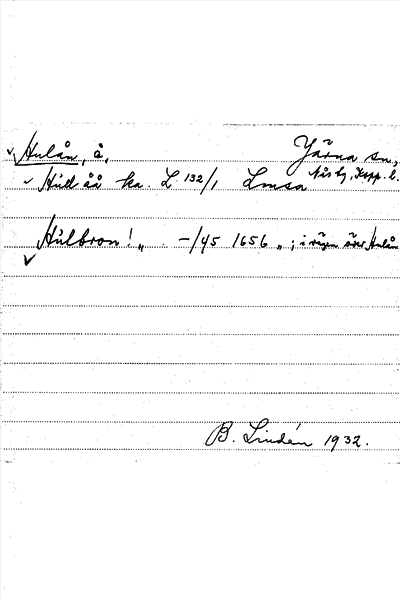 Hulån, å, Järna sn,
Nås tg, Kopp. l.
Hûll åå ka. L 132/1 Lmsa
Hûlbron! „ -/45 1656 „ ; i vägen över Hulån
B. Lindén 1932.